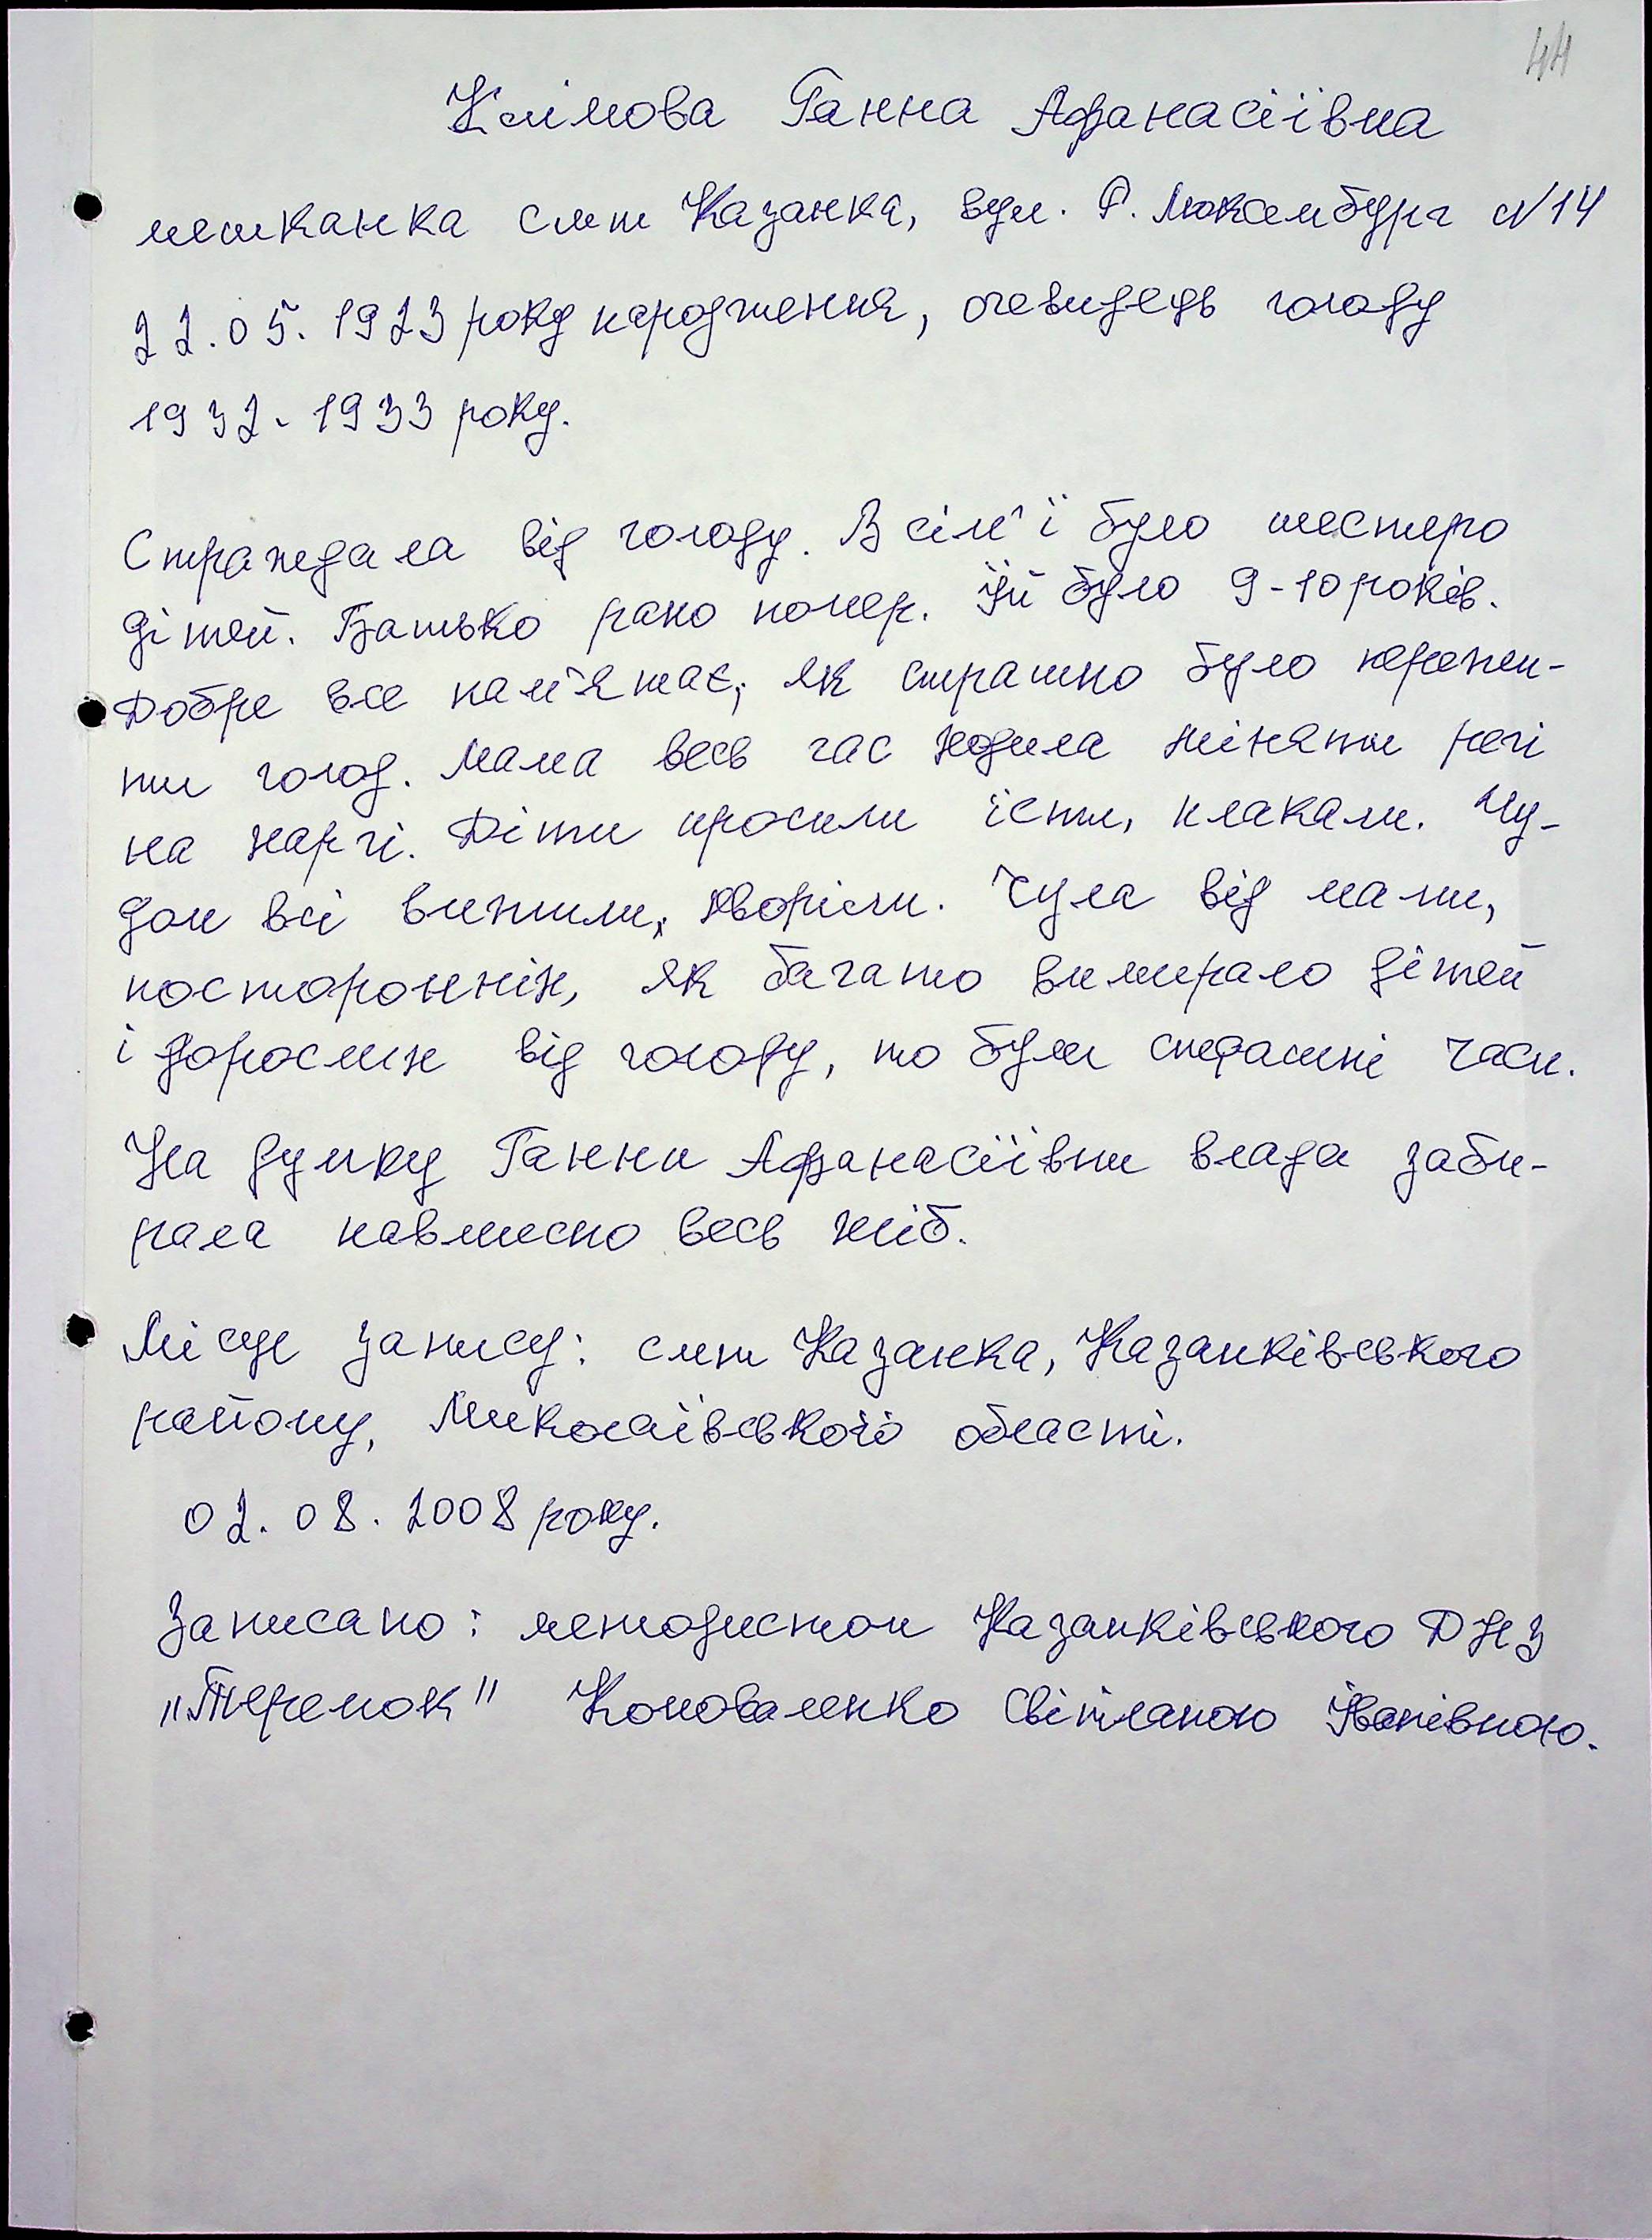 44
Клімова Ганна Афанасіївна
мешканка смт Казанка, вул. Р. Люксембург №14
22.05.1923 року народження, очевидець голоду
1932-1933 року.
Страждала від голоду. В сім'ї було шестеро
дітей. Батько рано помер. Їй було 9-10 років.
Добре все пам'ятає, як страшно було пережи-
ти голод. Мама весь час ходила міняти речі
на харчі. Діти просили їсти, плакали. Чу-
дом всі вижили, хворіли. Чула від мами,
посторонніх, як багато вимирало дітей
і дорослих від голоду, то були страшні часи.
На думку Ганни Афанасіївни влада заби-
рала навмисно весь хліб.
Місце запису: смт Казанка, Казанківського
району, Миколаївської області.
02.08.2008 року.
Записано: методистом Казанківського ДНЗ
"Теремок" Коноваленко Світланою Іванівною.